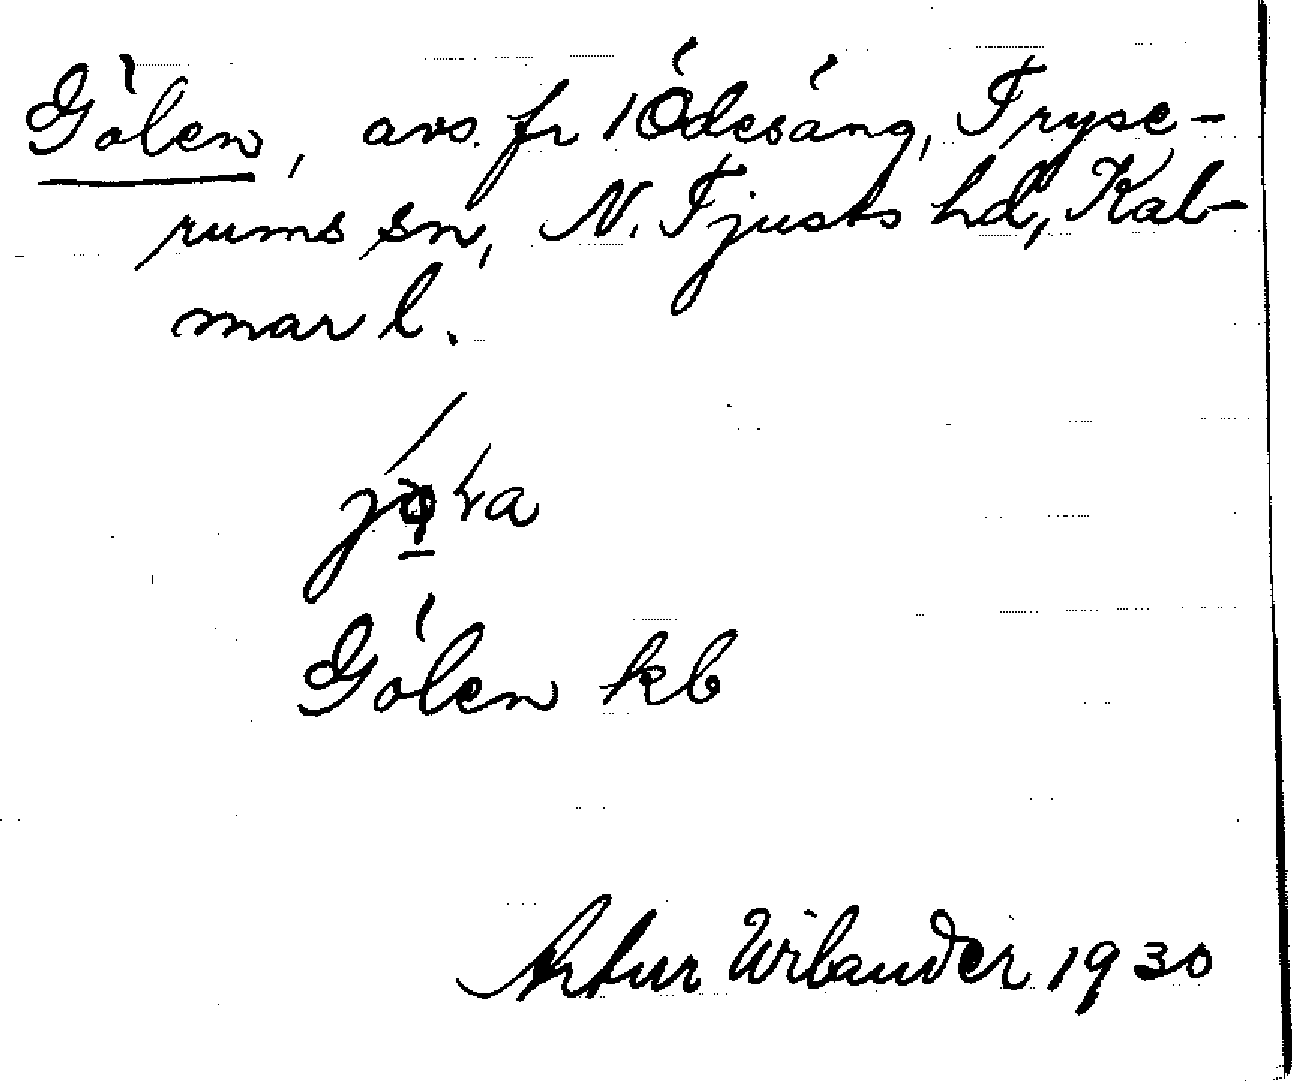 Gölen, avs. fr 1 Ödesäng, Tryse-
rums sn, N. Tjusts hd, Kal-
mar l.
Gölen kb
Artur Wilander 1930